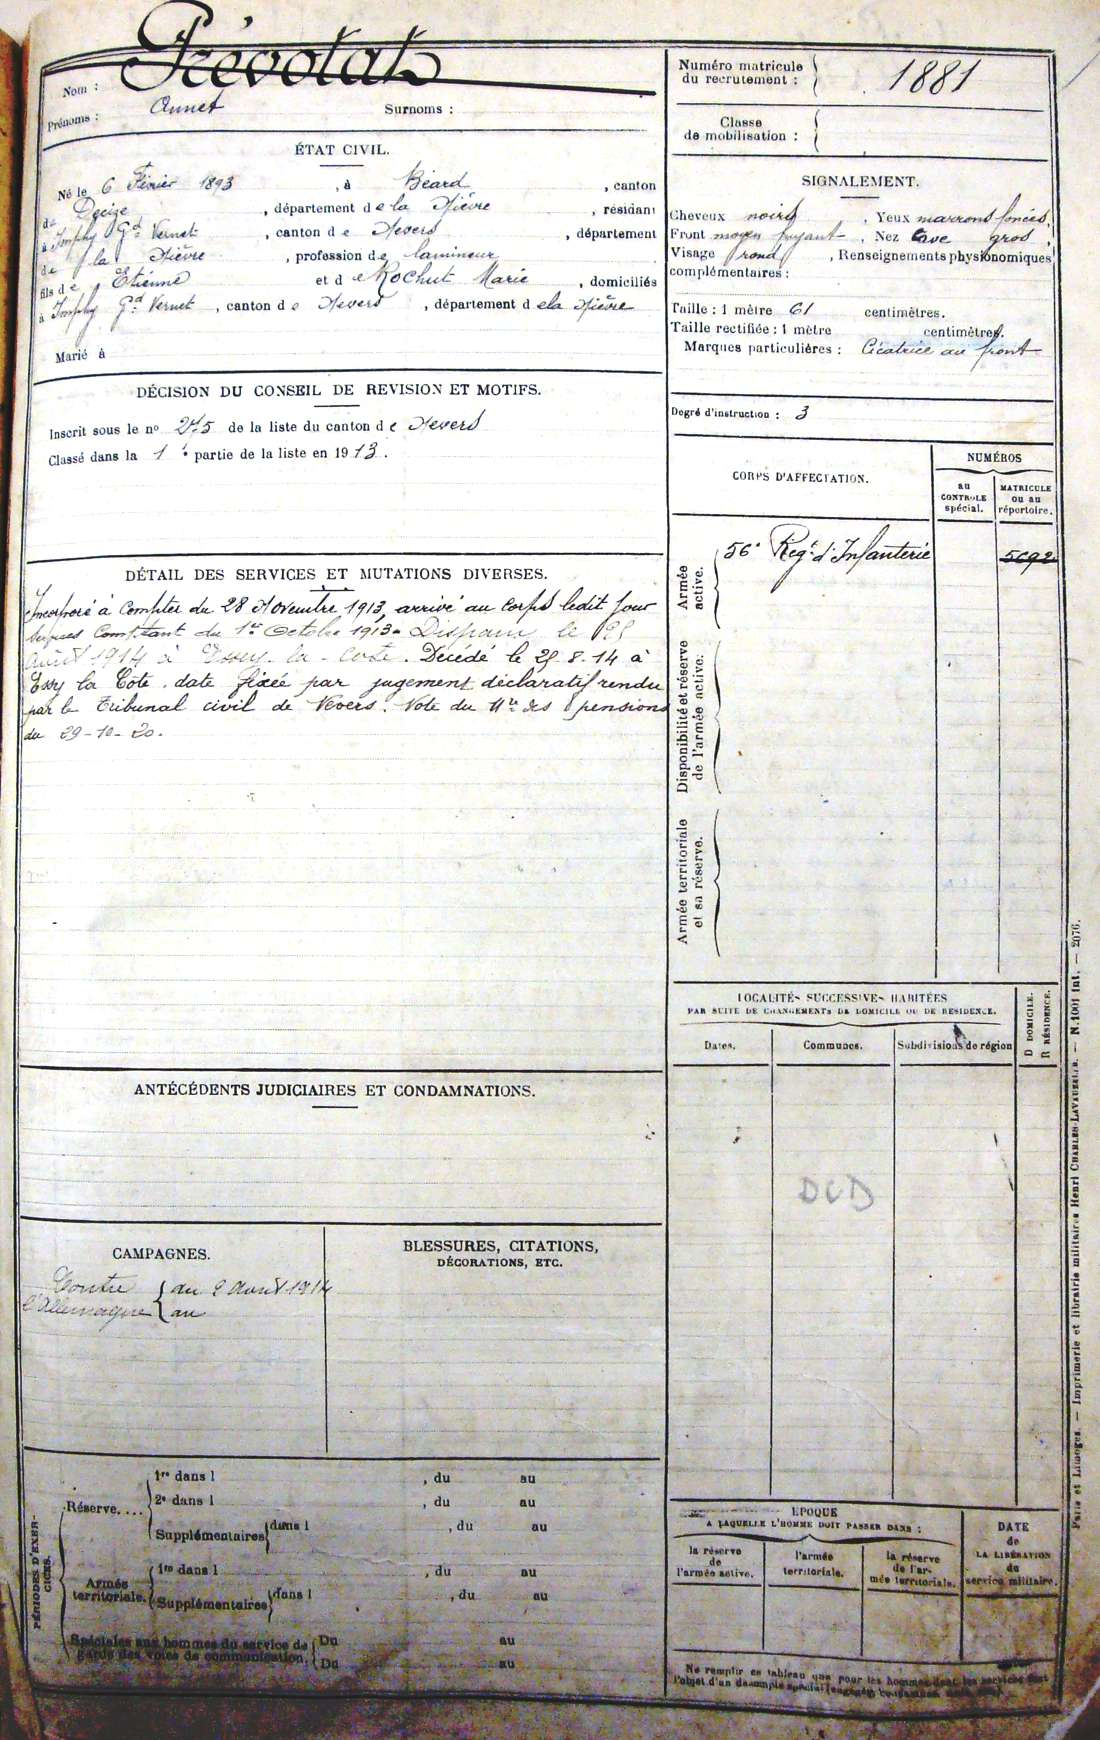 Nom : Prévotat
Prénoms : Annet Surnoms :
ÉTAT CIVIL.
Né le 6 Février 1893, à Béard, canton
de Decize, département de la Nièvre, résidant
à Imphy Gd Vernet, canton de Nevers, département
de la Nièvre, profession de lamineur
fils de Etienne et de Rochut Marie, domiciliés
à Imphy Gd Vernet, canton de Nevers, département de la Nièvre
Marié à
DÉCISION DU CONSEIL DE REVISION ET MOTIFS.
Inscrit sous le no 275 de la liste du canton de Nevers
Classé dans la 1e partie de la liste en 1913.
DÉTAIL DES SERVICES ET MUTATIONS DIVERSES.
Incorporé à compter du 28 Novembre 1913, arrivé au corps ledit jour
comptant du 1er Octobre 1913. Disparu le 25
août 1914 à Essey-la-Cote. Décédé le 25.8.14 à
Essy la Côte. date fixée par jugement déclaratif rendu
par le Tribunal civil de Nevers. Note du Mre des pensions
du 29-10-20.
ANTÉCÉDENTS JUDICIAIRES ET CONDAMNATIONS.
CAMPAGNES.
Contre du 2 Aout 1914
l'Allemagne au
BLESSURES, CITATIONS,
DÉCORATIONS, ETC.
PÉRIODES D'EXERCICES.
Réserve....
1re dans l , du au
2e dans l , du au
Supplémentaires dans l , du au
Armée territoriale.
1re dans l , du au
Supplémentaires dans l , du au
Spéciales aux hommes du service de Du au
garde des voies de communication. Du au
Numéro matricule
du recrutement : 1881
Classe
de mobilisation :
SIGNALEMENT.
Cheveux noirs, Yeux marrons foncés,
Front moyen fuyant, Nez cave gros,
Visage rond, Renseignements physionomiques
complémentaires :
Taille : 1 mètre 61 centimètres.
Taille rectifiée : 1 mètre centimètres.
Marques particulières : Cicatrice au front
Degré d'instruction : 3
CORPS D'AFFECTATION.
NUMÉROS
au
CONTROLE
spécial.
MATRICULE
ou au
répertoire.
Armée
active.
56e Regt d'Infanterie 5092
Disponibilité et réserve
de l'armée active.
Armée territoriale
et sa réserve.
LOCALITÉS SUCCESSIVES HABITÉES
PAR SUITE DE CHANGEMENTS DE DOMICILE OU DE RÉSIDENCE.
D DOMICILE.
R RÉSIDENCE.
Dates. Communes. Subdivisions de région
DCD
ÉPOQUE
A LAQUELLE L'HOMME DOIT PASSER DANS :
la réserve
de
l'armée active.
l'armée
territoriale.
la réserve
de l'ar-
mée territoriale.
DATE
de
LA LIBÉRATION
du
service militaire.
Ne remplir ce tableau que pour les hommes dont les services font
l'objet d'un décompte spécial
Paris et Limoges. — Imprimerie et librairie militaires Henri CHARLES-LAVAUZELLE. — N. 1001 int. — 2076.